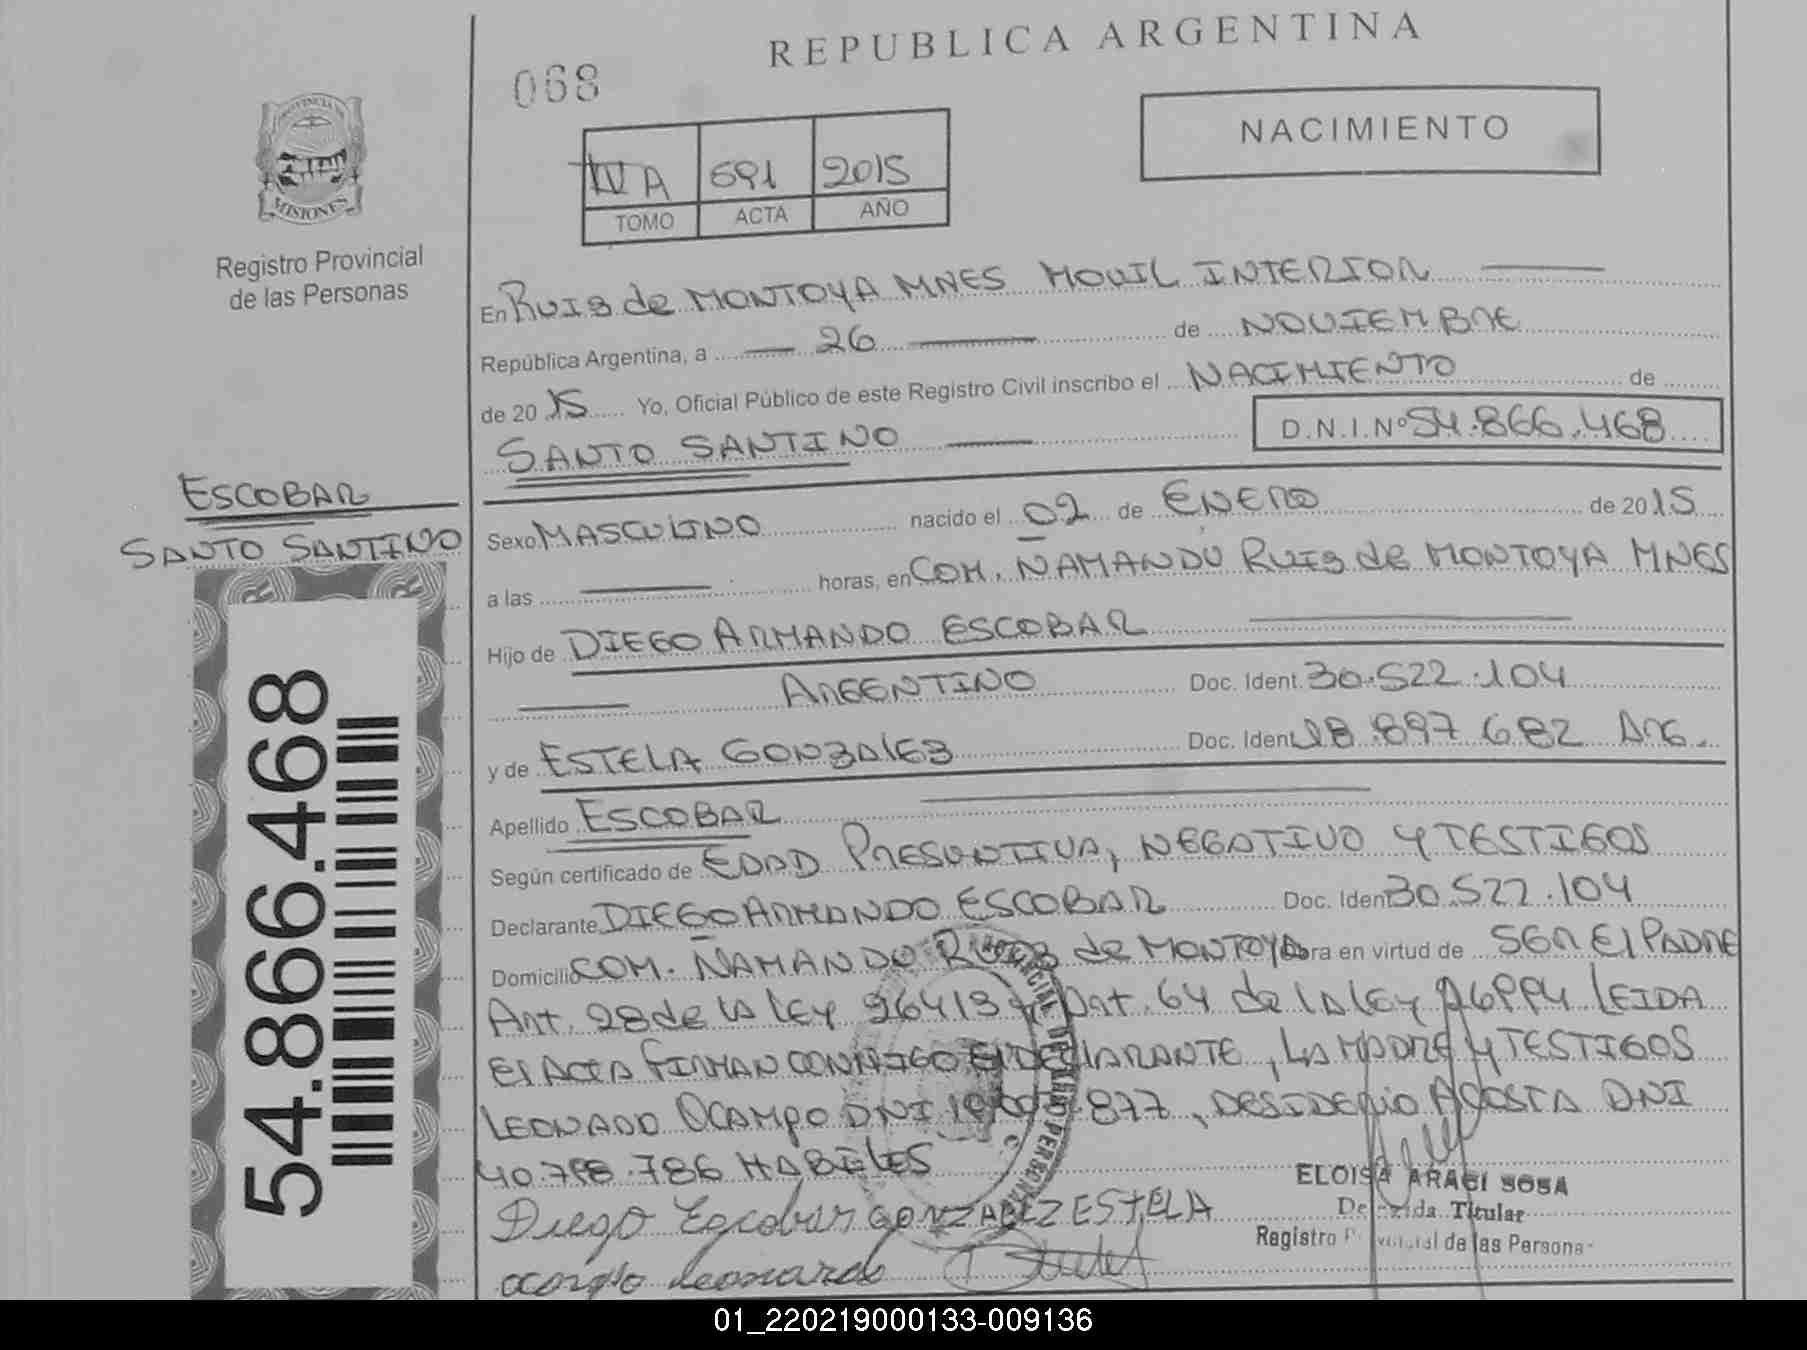 REPUBLICA ARGENTINA
068
NACIMIENTO
PROVINCIA DE
MISIONES
Registro Provincial
de las Personas
IV A 691 2015
TOMO ACTA AÑO
En RUIZ de MONTOYA MNES MOVIL INTERIOR
República Argentina, a 26 de NOVIEMBRE
de 20 15 Yo, Oficial Público de este Registro Civil inscribo el NACIMIENTO de
SANTO SANTINO D.N.I.Nº 54.866.468
ESCOBAR
SANTO SANTINO
54.866.468
Sexo MASCULINO nacido el 02 de ENERO de 20 15
a las horas, en COM. ÑAMANDU RUIZ de MONTOYA MNES
Hijo de DIEGO ARMANDO ESCOBAR
ARGENTINO Doc. Ident. 30.522.104
y de ESTELA GONZALEZ Doc. Ident. 18.897.682 ARG.
Apellido ESCOBAR
Según certificado de EDAD PRESUNTIVA, NEGATIVO Y TESTIGOS
Declarante DIEGO ARMANDO ESCOBAR Doc. Ident 30.522.104
Domicilio COM. ÑAMANDU RUIZ de MONTOYA Obra en virtud de SER El PADRE
Art. 28 de la LEY 26413 y Art. 64 de la LEY 26994 LEIDA
El ACTA FIRMAN CONMIGO El DEClARANTE, LA MADRE Y TESTIGOS
LEONADO OCAMPO DNI 877, DESIDERIO ACOSTA DNI
40.798.786 HABILES
Diego Escobar GONZALEZ ESTELA
ocampo leonardo
ELOISA ARACI SOSA
Delegada Titular
Registro Provincial de las Personas
01_220219000133-009136